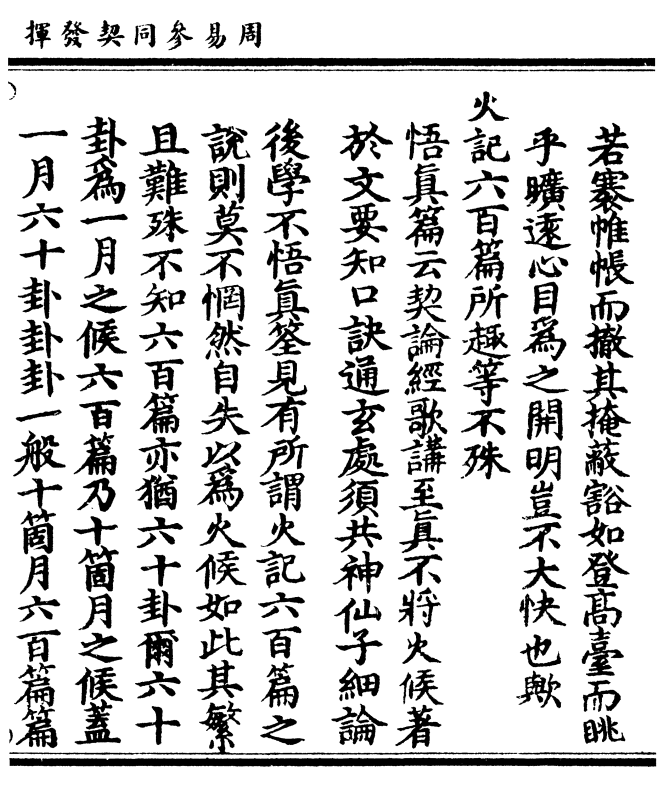 周易參同契發揮
若褰帷帳而撤其掩蔽豁如登高臺而眺
乎曠遠心目爲之開明豈不大快也歟
火記六百篇所趣等不殊
悟眞篇云契論經歌講至眞不將火候著
於文要知口訣通玄處須共神仙子細論
後學不悟眞筌見有所謂火記六百篇之
說則莫不惘然自失以爲火候如此其繁
且難殊不知六百篇亦猶六十卦爾六十
卦爲一月之候六百篇乃十箇月之候蓋
一月六十卦卦卦一般十箇月六百篇篇